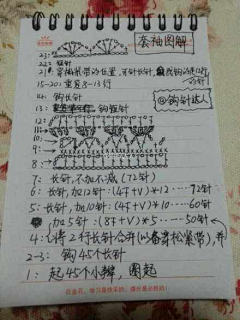 套袖图解
23:
22: 短针
15-20: 重复8-13行
@钩针达人
14: 钩长针
13: 钩短针
12
11
10
9
8
7: 长针,不加不减(72针)
6: 长针,加12针:(4T+V)*12……72针
5: 长针,加10针:(4T+V)*10……60针
加5针:(8T+V)*5……50针
4: 将2行长针合并(以备穿松紧带),并
2-3: 钩45个长针
1: 起45个小辫,圈起